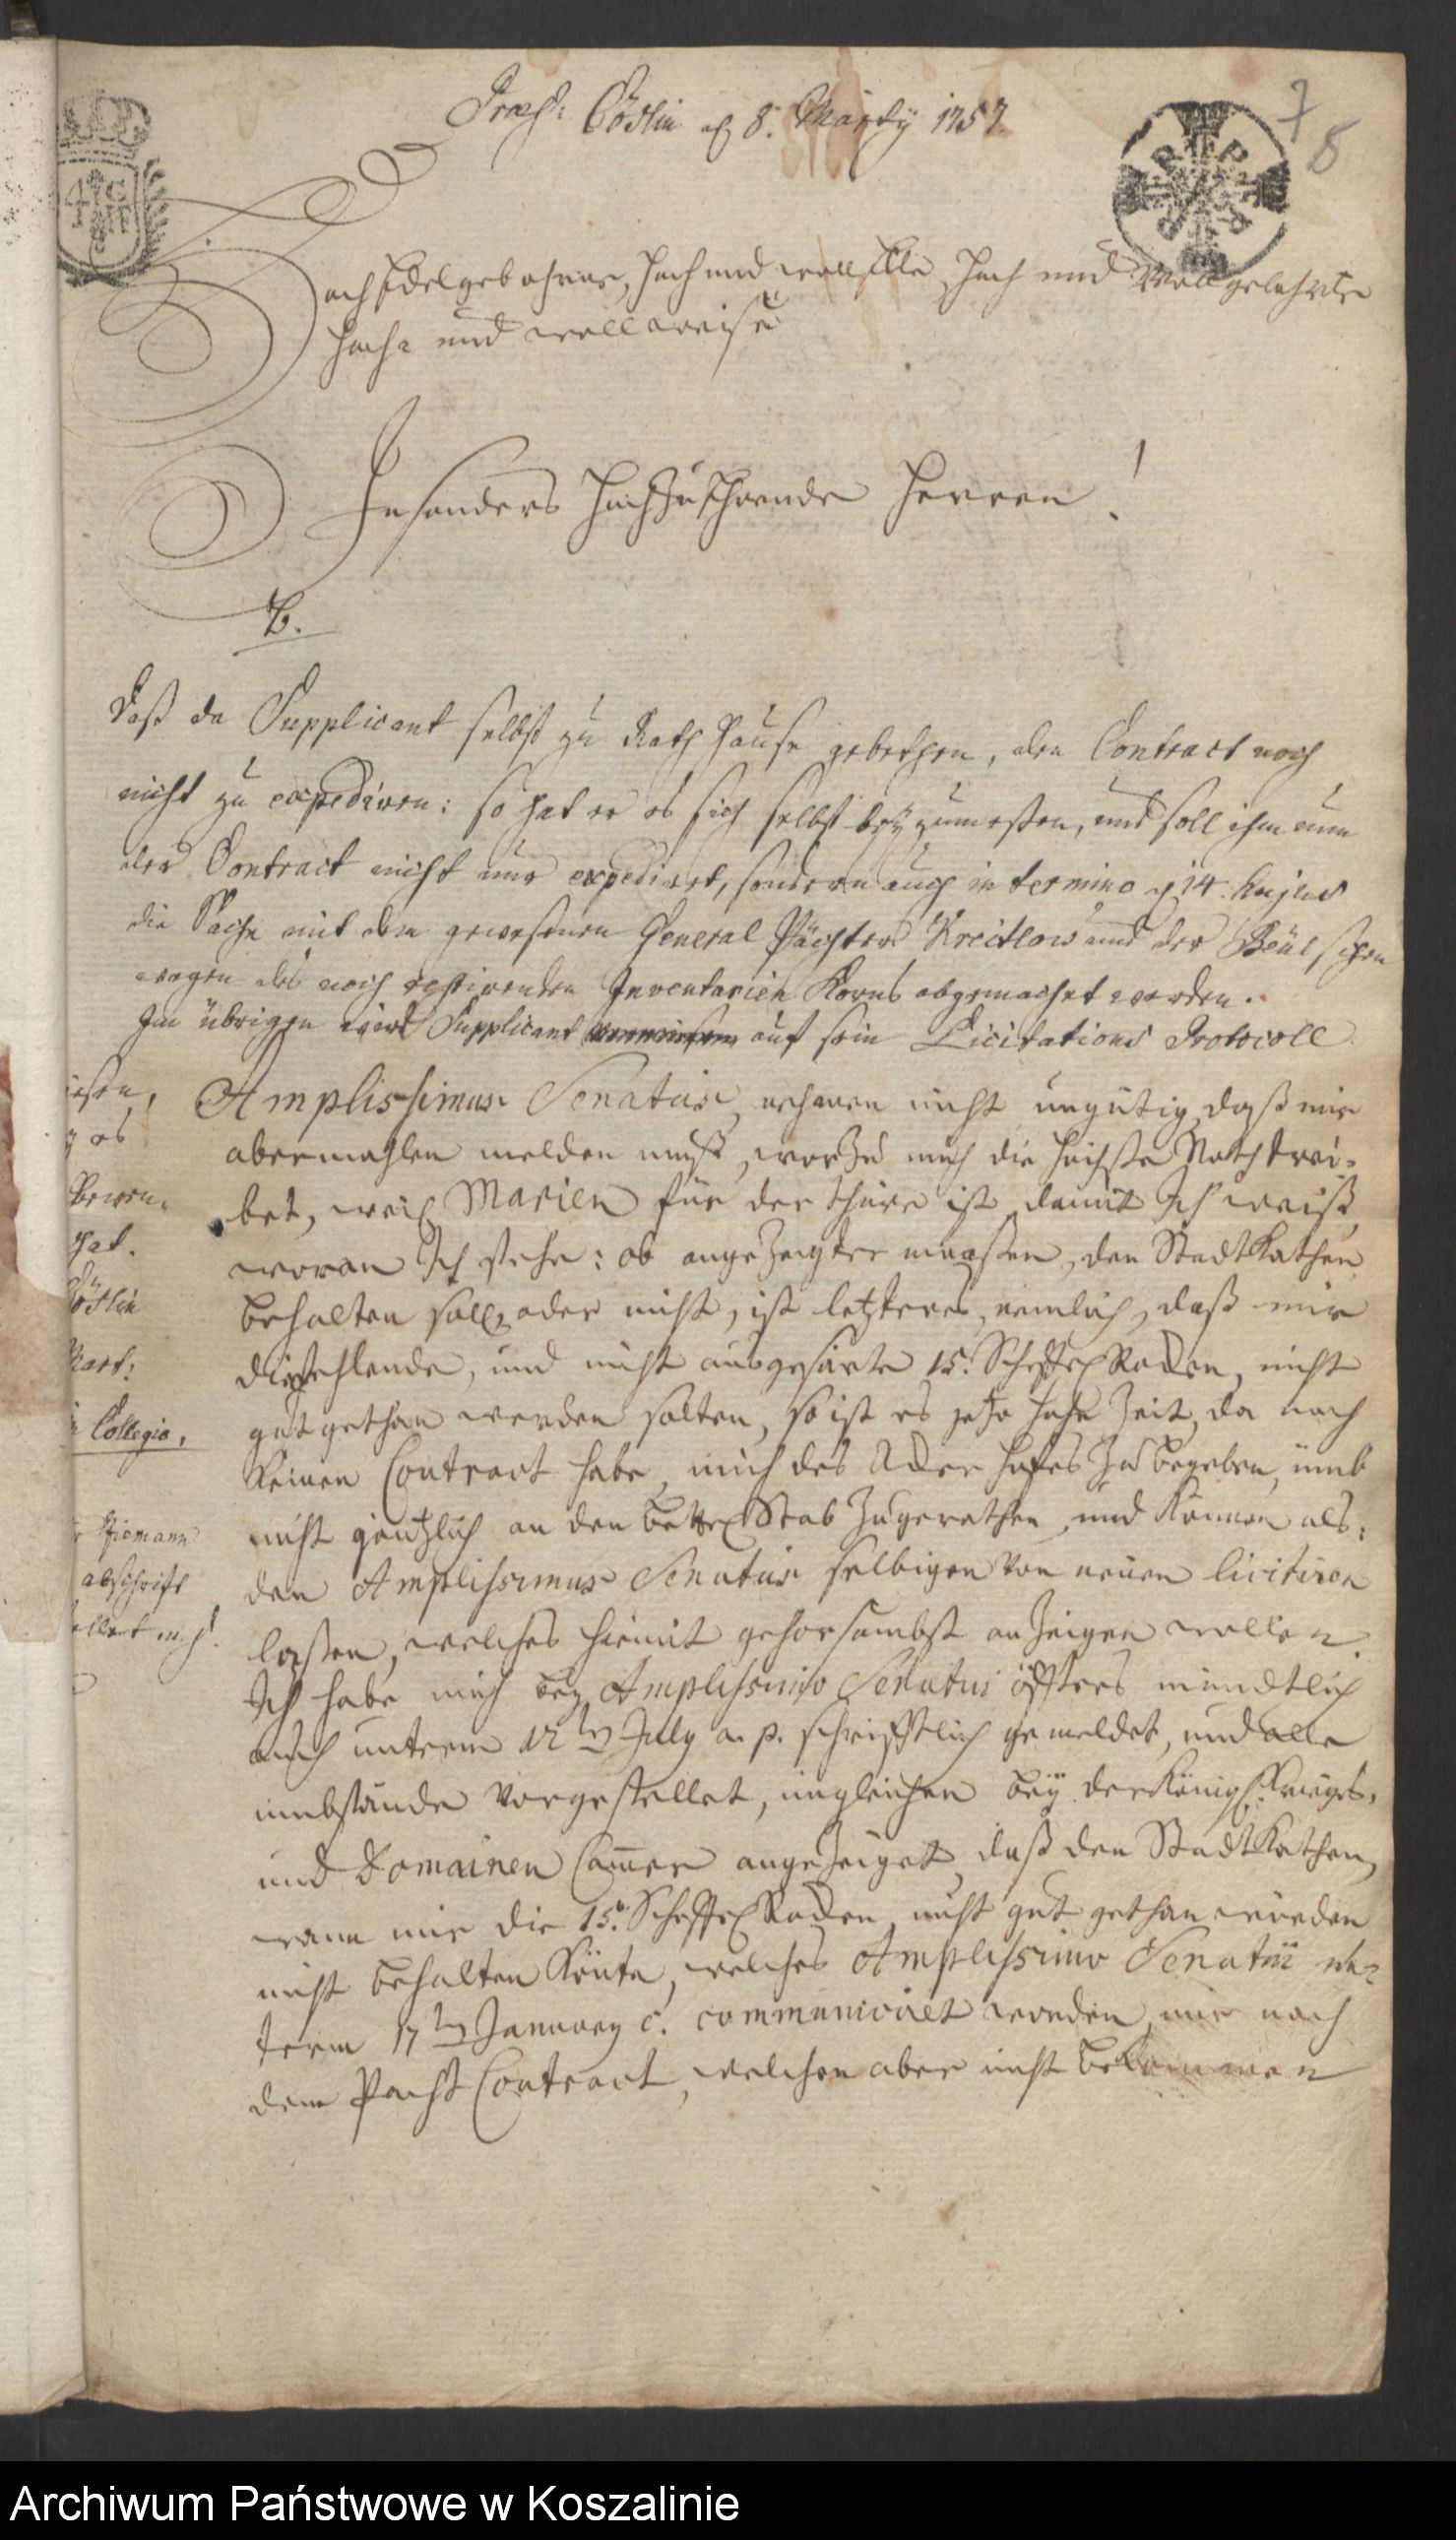 Præs: Cößlin d 8. Martÿ 1757.
7
8
Hoch Edelgebohrne, Hoch und wolledle, Hoch und Wollgelahrte
Hoch- und wollweise
Insonders Hochzuehrende Herren!
B.
Daß da Supplicant selbst zu Rath Hause gebethen, den Contract noch
nicht zu expediren: so hat er es sich selbst beÿzumeßen, und soll ihm nun
der Contract nicht nur expediret, sondern auch in termino d 14. hujus
die Sache mit dem gewesenen General Pächter Kreitlow und der
wegen des noch restirenden Inventarien Korns abgemachet werden.
Im übrigen wird Supplicant auf sein Licitations Protocoll
Amplissimus Senatus, nehmen nicht ungütig, daß mich
abermahlen melden muß, worzu mich die höchste Noth trei-
bet, weil Marien für der thüre ist, damit Ich weiß,
woran Ich stehe: ob angezeigter maaßen, den StadtKathen
behalten soll, oder nicht, ist letzteres, nemlich, daß mir
die fehlende, und nicht ausgesäete 15. Scheffel Rocken, nicht
gut gethan werden solten, so ist es jetzo hohe Zeit, da noch
keinen Contract habe, mich des Acker Hofes zu begeben, umb
nicht gäntzlich an den Bettel Stab zu gerathen, und können als-
den Amplissimus Senatus selbigen von neuen licitiren
laßen, welches hiemit gehorsambst anzeigen wollen.
Ich habe mich beÿ Amplissimo Senatui öffters mündtlich
auch unterm 12ten July a. p. schrifftlich gemeldet, und alle
umbstände vorgestellet, ingleichen beÿ der Königl. Krieges-
und Domainen Cammer angezeiget, daß den StadtKathen,
wann mir die 15. Scheffel Rocken, nicht gut gethan würden
nicht behalten könte, welches Amplissimo Senatui un-
term 17ten January c. communiciret worden, mir noch
dem Pacht Contract, welchen aber nicht bekommen
ob
hat.
Cößlin
Mart:
Collegio.
abschrifft
Archiwum Państwowe w Koszalinie